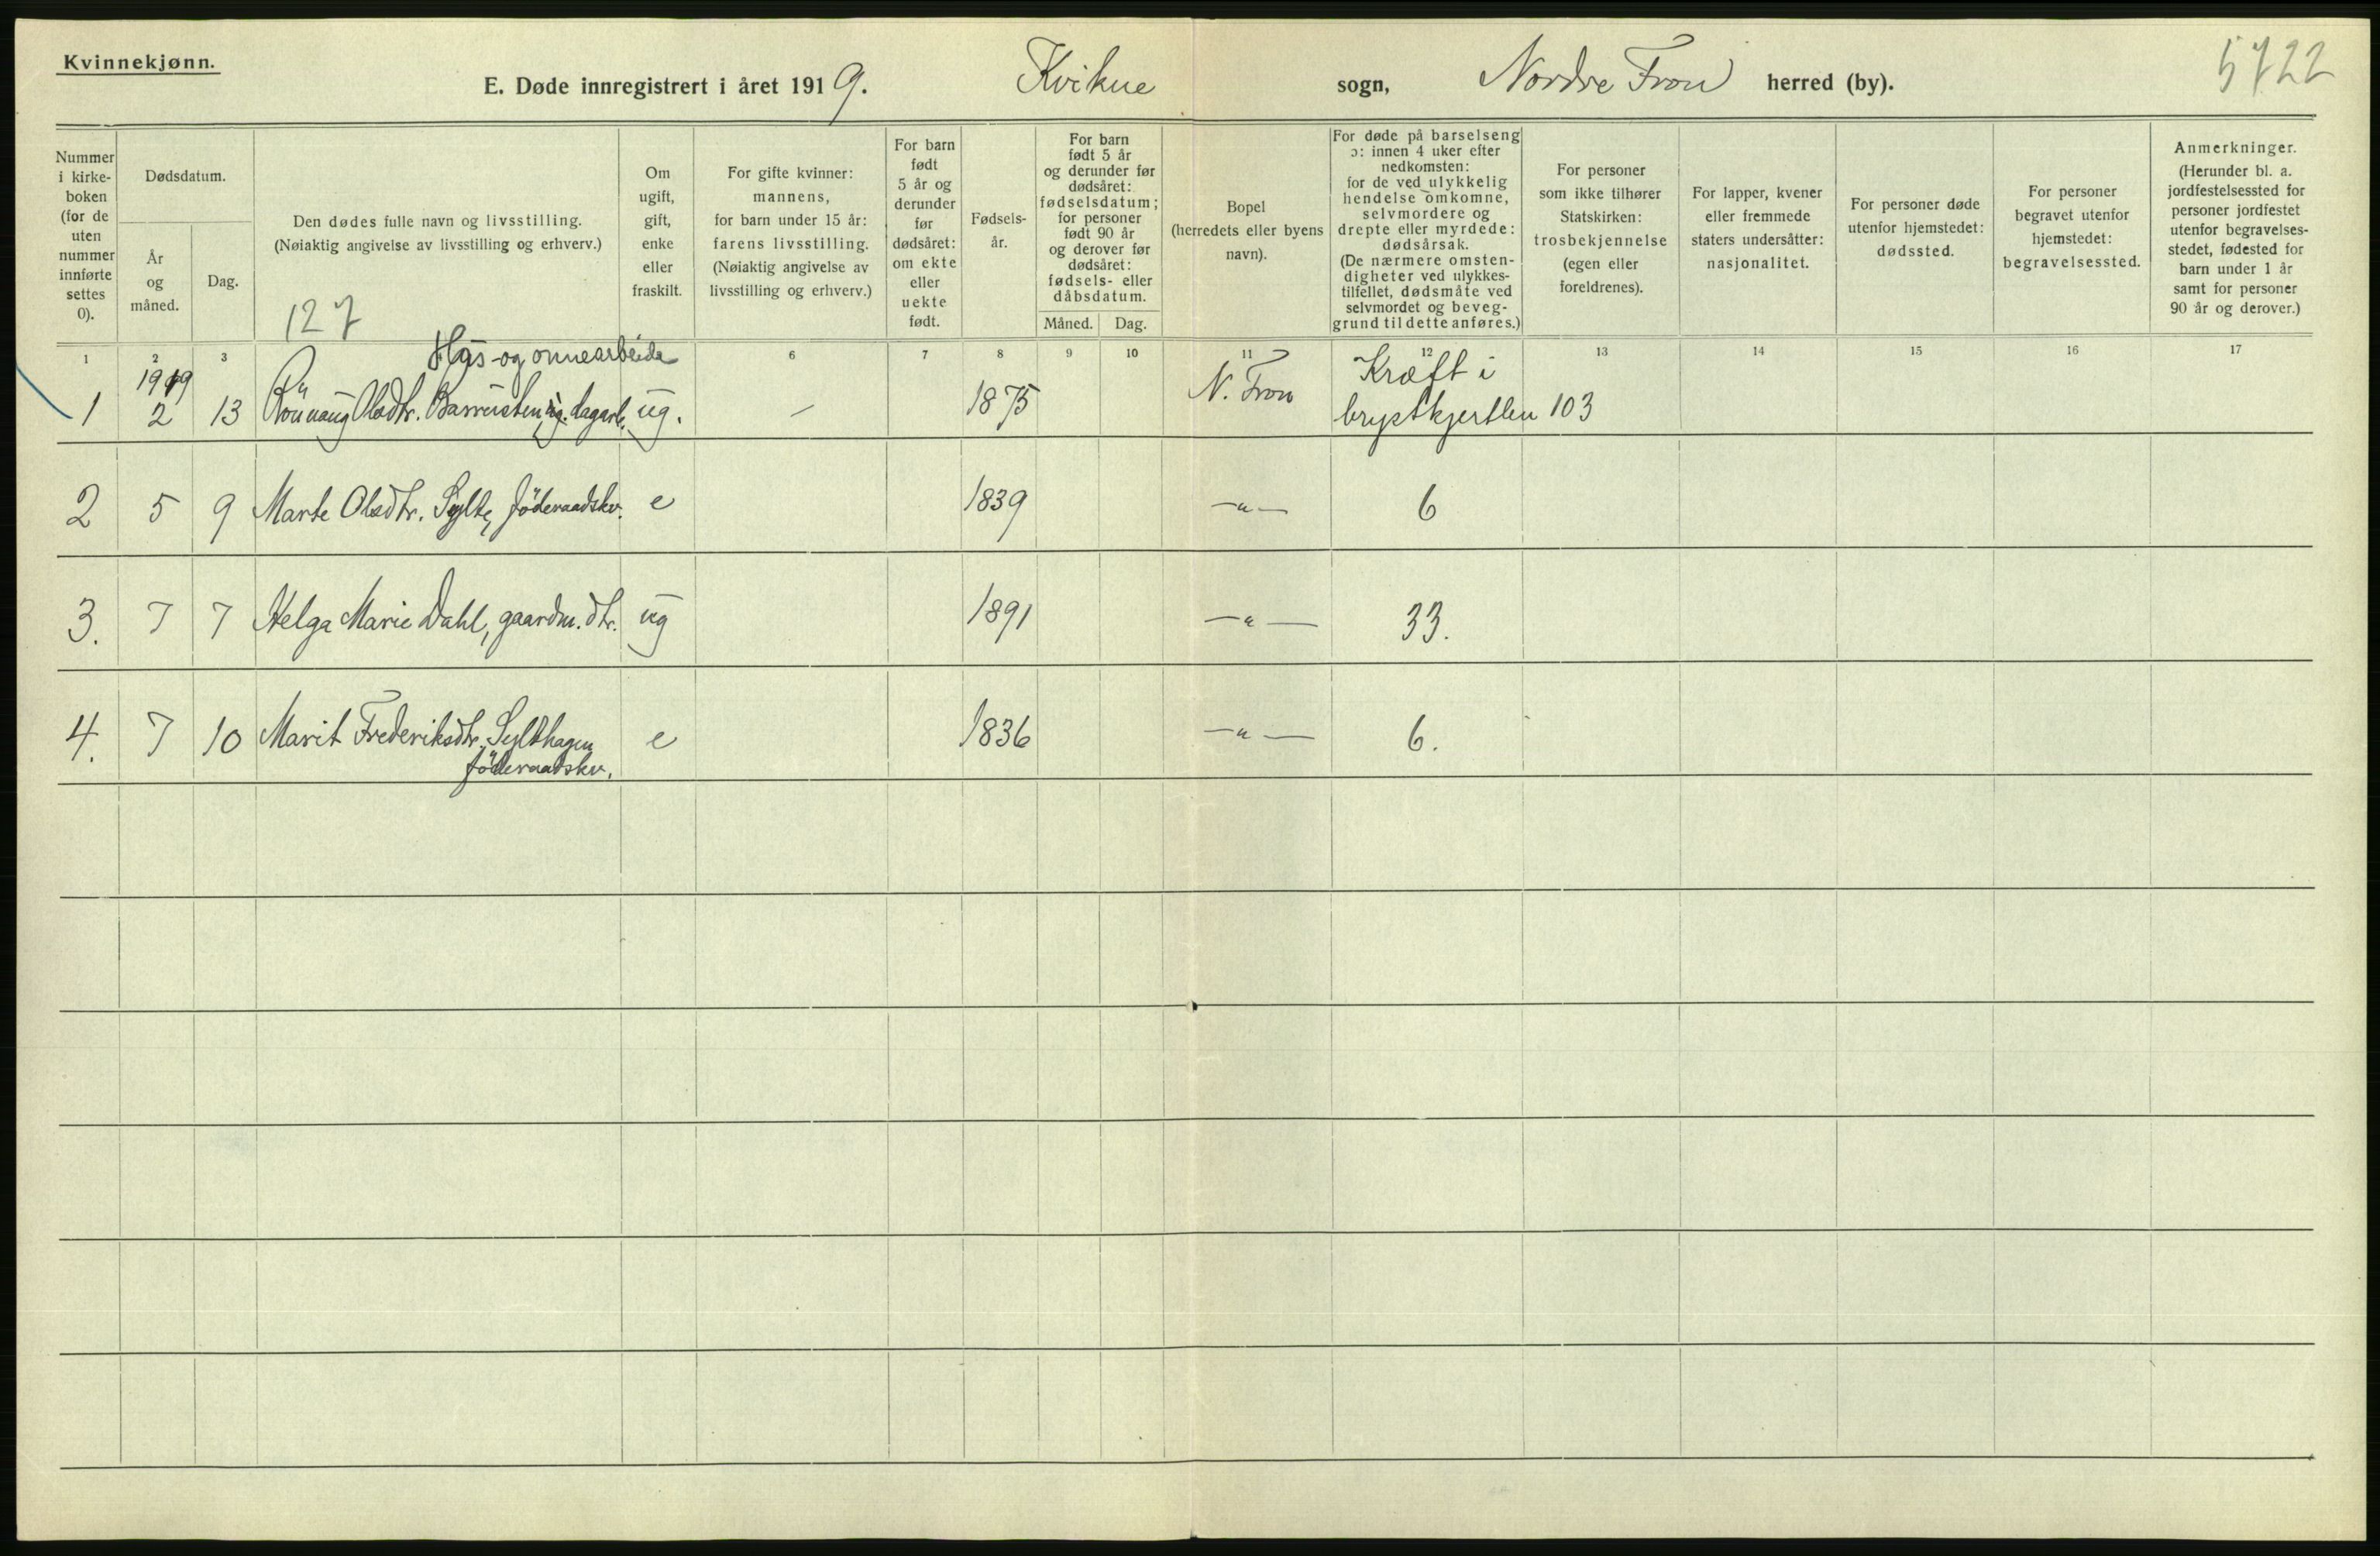 Kvinnekjønn.
E. Døde innregistrert i året 1919. Kvikne sogn, Nordre Fron herred (by). 5722
Nummer i kirke-boken (for de uten nummer innførte settes 0).
Dødsdatum.
År og måned.
Dag.
Den dødes fulle navn og livsstilling.
(Nøiaktig angivelse av livsstilling og erhverv.)
127
Om ugift, gift, enke eller fraskilt.
For gifte kvinner: mannens, for barn under 15 år: farens livsstilling. (Nøiaktig angivelse av livsstilling og erhverv.)
For barn født 5 år og derunder før dødsåret: om ekte eller uekte født.
Fødsels-år.
For barn født 5 år og derunder før dødsåret: fødselsdatum; for personer født 90 år og derover før dødsåret: fødsels- eller dåbsdatum.
Måned. Dag.
Bopel (herredets eller byens navn).
For døde på barselseng ɔ: innen 4 uker efter nedkomsten: for de ved ulykkelig hendelse omkomne, selvmordere og drepte eller myrdede: dødsårsak. (De nærmere omsten-digheter ved ulykkes-tilfellet, dødsmåte ved selvmordet og beveg-grund til dette anføres.)
For personer som ikke tilhører Statskirken: trosbekjennelse (egen eller foreldrenes).
For lapper, kvener eller fremmede staters undersåtter: nasjonalitet.
For personer døde utenfor hjemstedet: dødssted.
For personer begravet utenfor hjemstedet: begravelsessted.
Anmerkninger. (Herunder bl. a. jordfestelsessted for personer jordfestet utenfor begravelses-stedet, fødested for barn under 1 år samt for personer 90 år og derover.)
1 2 3 6 7 8 9 10 11 12 13 14 15 16 17
Hus- og onnearbeide
1919 Kræft i
1 2 13 Rönnaug Olsdtr. dagarb. ug. — 1875 N. Fron brystkjertlen 103
2 5 9 Marte Olsdtr. Sylte, föderaadskv. e 1839 —"— 6
3. 7 7 Helga Marie Dahl, gaardm. dtr. ug 1891 —"— 33.
4. 7 10 Marit Frederiksdtr. Sylthagen e 1836 —"— 6.
föderaadskv.